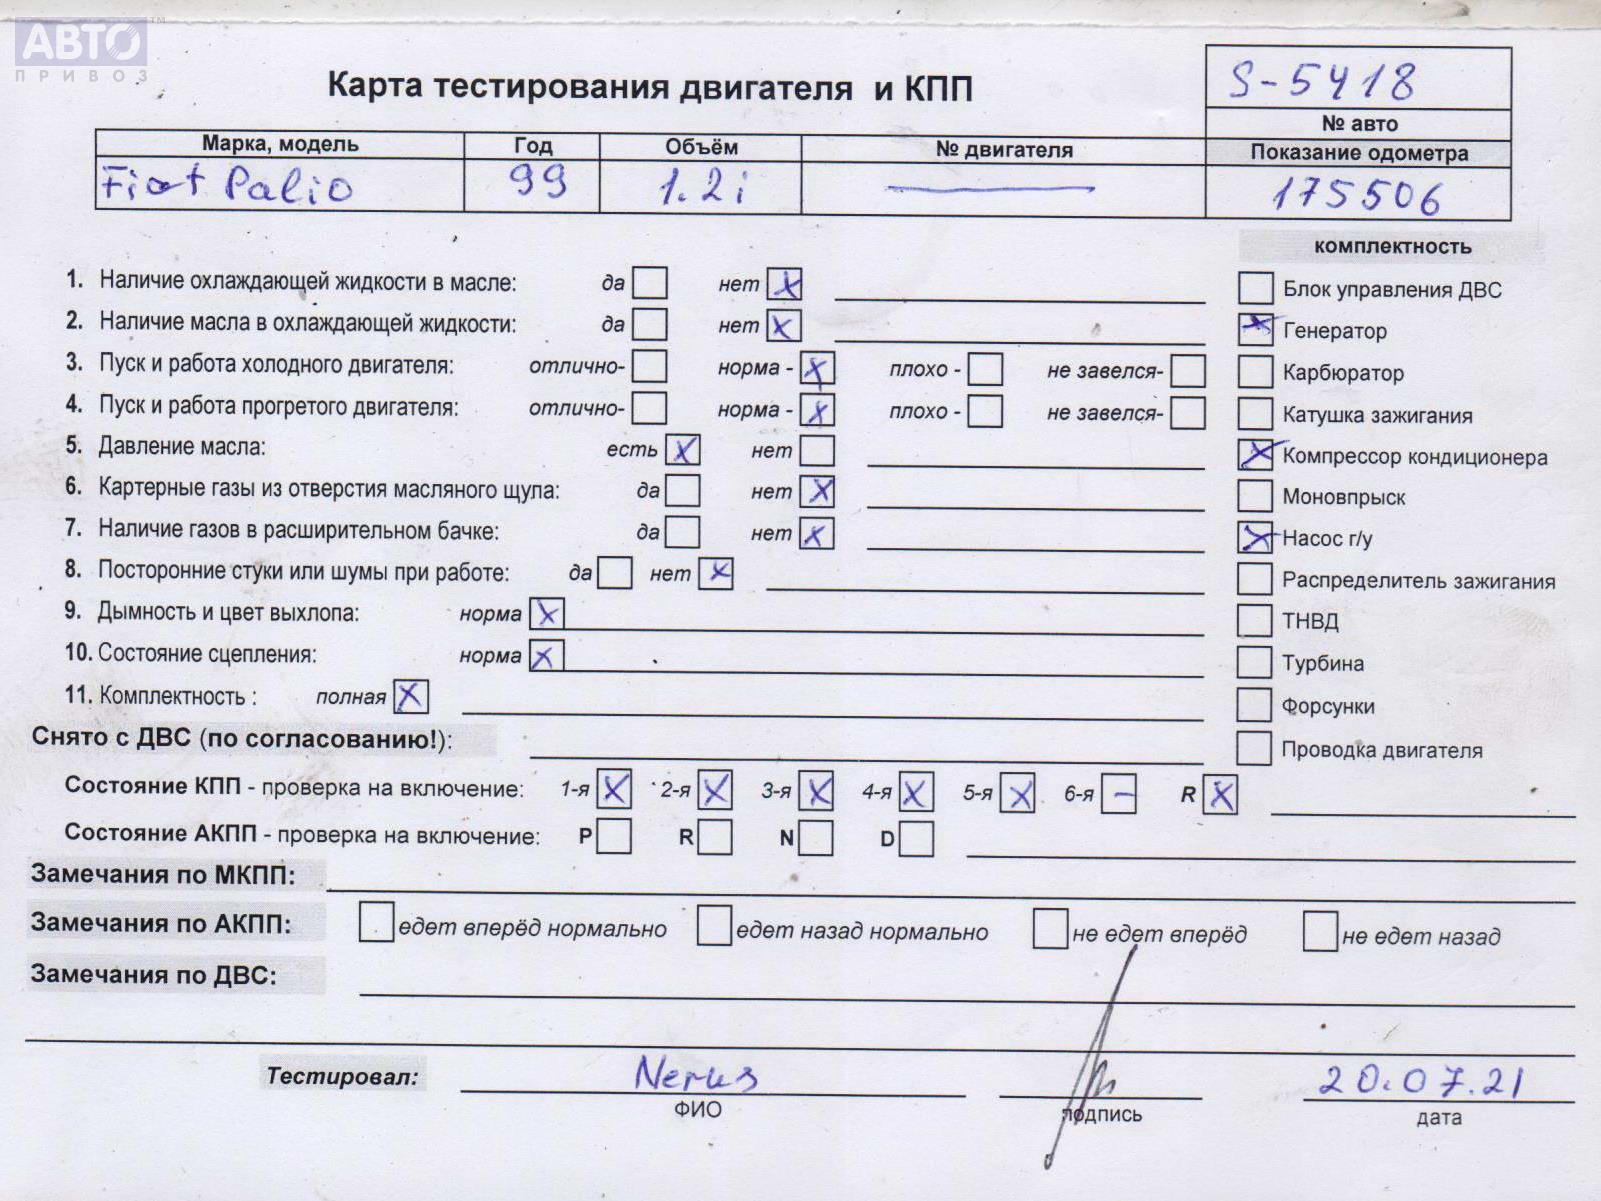 АВТО™
ПРИВОЗ
Карта тестирования двигателя и КПП
S-5418
№ авто
Марка, модель Год Объём № двигателя Показание одометра
Fiat Palio 99 1.2i — 175506
комплектность
1. Наличие охлаждающей жидкости в масле: да нет x
Блок управления ДВС
2. Наличие масла в охлаждающей жидкости: да нет x
x Генератор
3. Пуск и работа холодного двигателя: отлично- норма - x плохо - не завелся-
Карбюратор
4. Пуск и работа прогретого двигателя: отлично- норма - x плохо - не завелся-
Катушка зажигания
5. Давление масла: есть x нет
x Компрессор кондиционера
6. Картерные газы из отверстия масляного щупа: да нет x
Моновпрыск
7. Наличие газов в расширительном бачке: да нет x
x Насос г/у
8. Посторонние стуки или шумы при работе: да нет x
Распределитель зажигания
9. Дымность и цвет выхлопа: норма x
ТНВД
10. Состояние сцепления: норма x
Турбина
11. Комплектность : полная x
Форсунки
Снято с ДВС (по согласованию!):
Проводка двигателя
Состояние КПП - проверка на включение: 1-я x 2-я x 3-я x 4-я x 5-я x 6-я – R x
Состояние АКПП - проверка на включение: P R N D
Замечания по МКПП:
Замечания по АКПП: едет вперёд нормально едет назад нормально не едет вперёд не едет назад
Замечания по ДВС:
Тестировал: Nerus 20.07.21
ФИО подпись дата